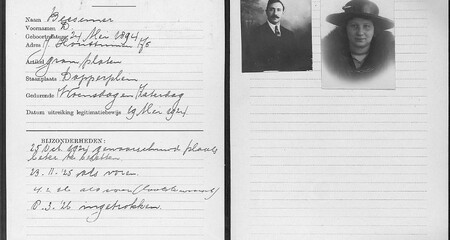 Naam Bessemer
Voornamen D.
Geboortedatum 24 Mei 1894
Adres
Artikel gram. platen
Staanplaats Dapperplein
Gedurende Woensdag en Zaterdag
Datum uitreiking legitimatiebewijs 19 Mei 1924
BIJZONDERHEDEN:
25 Oct. 1924 gewaarschuwd plaats
beter te bezetten
23-11-'25 als voren
als voren
8.3.'26 ingetrokken.